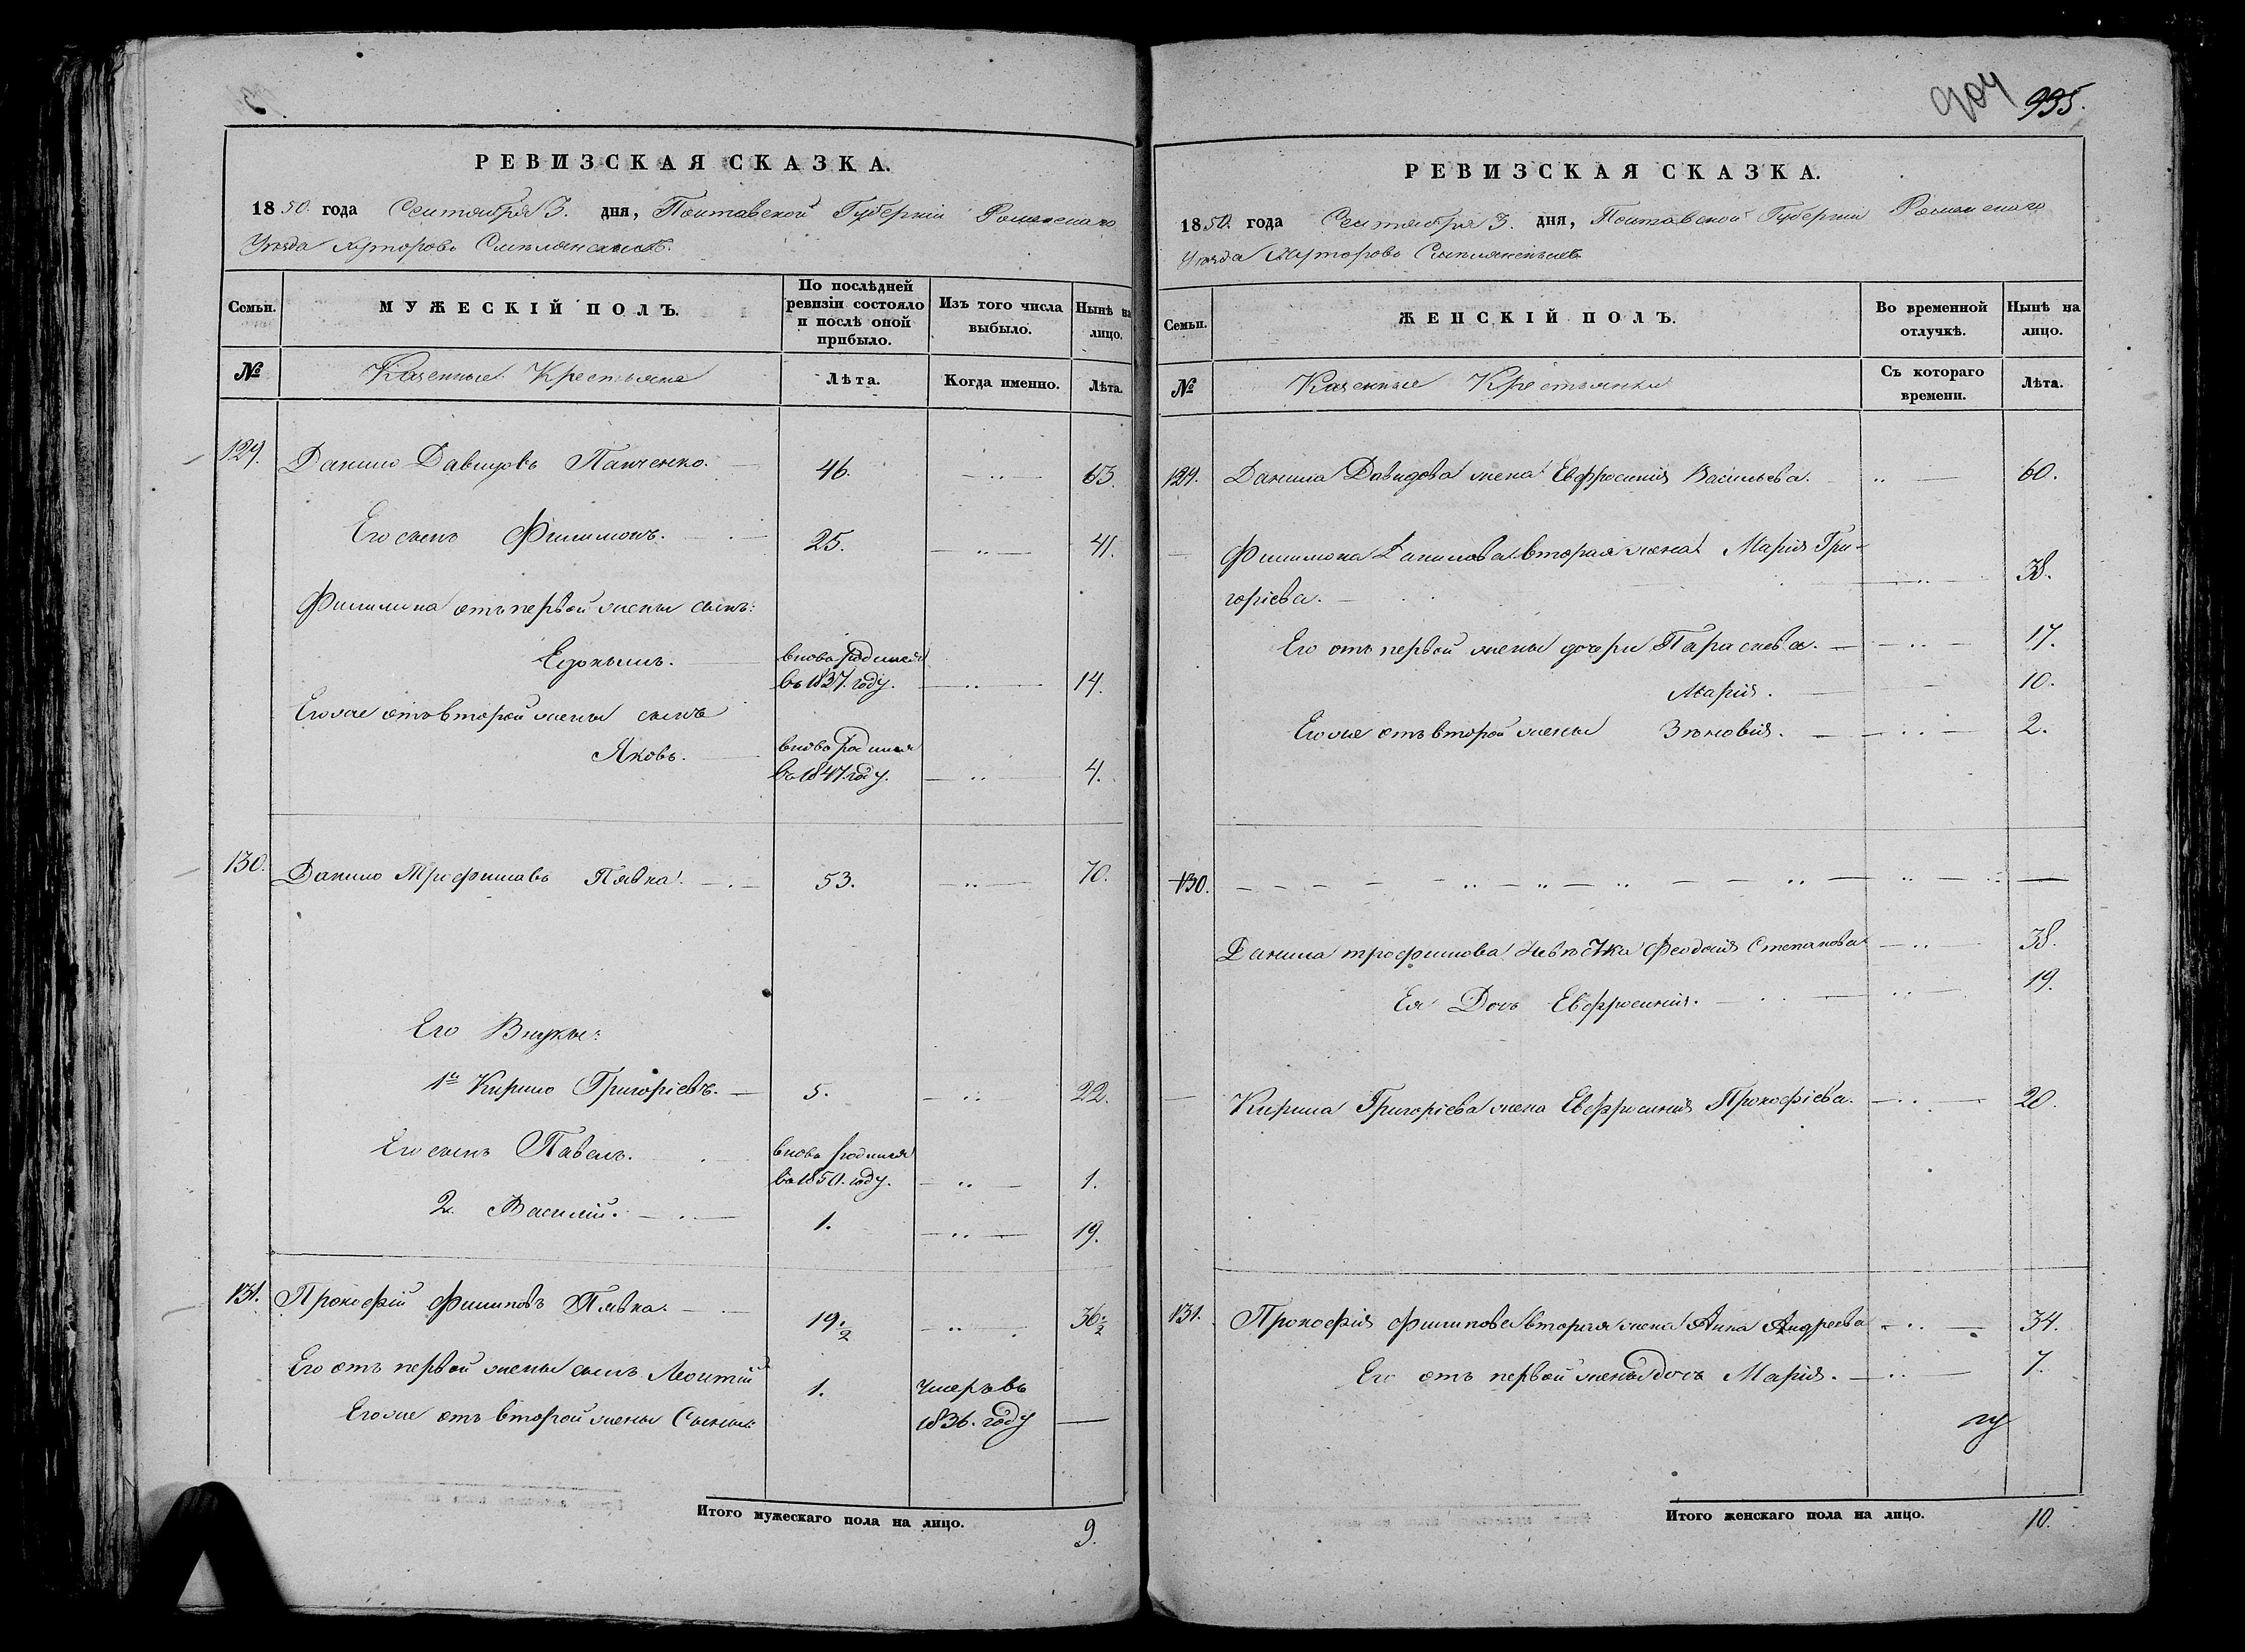 РЕВИЗСКАЯ СКАЗКА.
1850. года Сентября 3. дня, Полтавской Губернии Роменскаго
Уезда Хуторовъ Смелянскихъ.
Семьи. МУЖЕСКІЙ ПОЛЪ. По послѣдней ревизіи состояло и послѣ оной прибыло. Изъ того числа выбыло. Нынѣ на лицо.
№ Казенные Крестьяне Лѣта. Когда именно. Лѣта.
129. Данило Давидовъ Панченко. 46. 63.
Его сынъ Филимонъ. 25. 41.
Филимона отъ первой жены сынъ:
Евдокимъ. вновь родился
въ 1837. году. 14.
Его же отъ второй жены сынъ
Яковъ. вновь родился
въ 1847. году. 4.
130. Данило Трофимовъ Пявка. 53. 70.
Его Внуки:
1й Кирило Григоріевъ. 5. 22.
Его сынъ Павелъ. вновь родился
въ 1850. году. 1.
2. Василій. 1. 19.
131. Прокофій Филиповъ Пявка. 19 1/2 36 1/2
Его отъ первой жены сынъ Леонтій 1. умеръ въ
Его же отъ второй жены Сыны: 1836. году
Итого мужескаго пола на лицо. 9.
904 995.
РЕВИЗСКАЯ СКАЗКА.
1850. года Сентября 3. дня, Полтавской Губернии Роменскаго
Уезда Хуторовъ Смелянскихъ
Семьи. ЖЕНСКІЙ ПОЛЪ. Во временной отлучкѣ. Нынѣ на лицо.
№ Казенные Крестьянки Съ котораго времени. Лѣта.
129. Данила Давидова жена Евфросинія Васильева. 60.
Филимона Данилова вторая жена Марія Гри-
горіева. 38.
Его отъ первой жены дочери Параскева. 17.
Марія. 10.
Его же отъ второй жены Зѣновія. 2.
130.
Данила трофимова невѣстка Феодосія Степанова 38.
Ея Дочь Евфросинія. 19.
Кирила Григоріева жена Евфросинія Прокофіева. 20.
131. Прокофія Филипова вторая жена Анна Андреева 34.
Его отъ первой жены дочь Марія. 7.
Итого женскаго пола на лицо. 10.